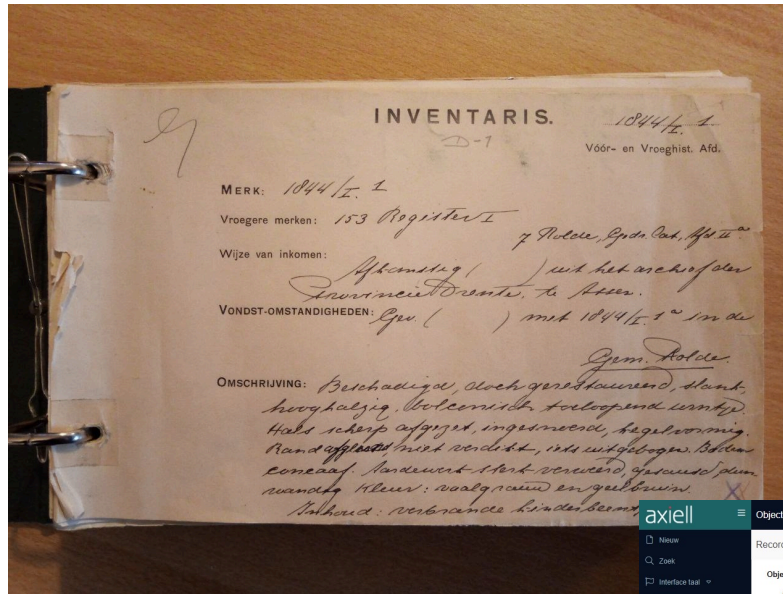 INVENTARIS.
1844/I. 1
D-1
Vóór- en Vroeghist. Afd.
MERK: 1844/I. 1
Vroegere merken: 153 Register I
7 Rolde, Gids. Cat. Afd II a
Wijze van inkomen:
Afkomstig ( ) uit het archief der
Provincie Drente, te Assen.
VONDST-OMSTANDIGHEDEN: Gev. ( ) met 1844/I. 1a in de
Gem. Rolde.
OMSCHRIJVING: Beschadigd, doch gerestaureerd, slank,
hooghalzig, bolconisch toeloopend urntje.
Hals scherp afgezet, ingesnoerd, kegelvormig.
Rand niet verdikt, iets uitgebogen. Bodem
concaaf. Aardewerk sterk verweerd, gesausd dun
wandig Kleur: vaalgrauw en geelbruin.
Inhoud: verbrande kinderbeent
axiell
Object
Nieuw
Record
Zoek
Obje
Interface taal